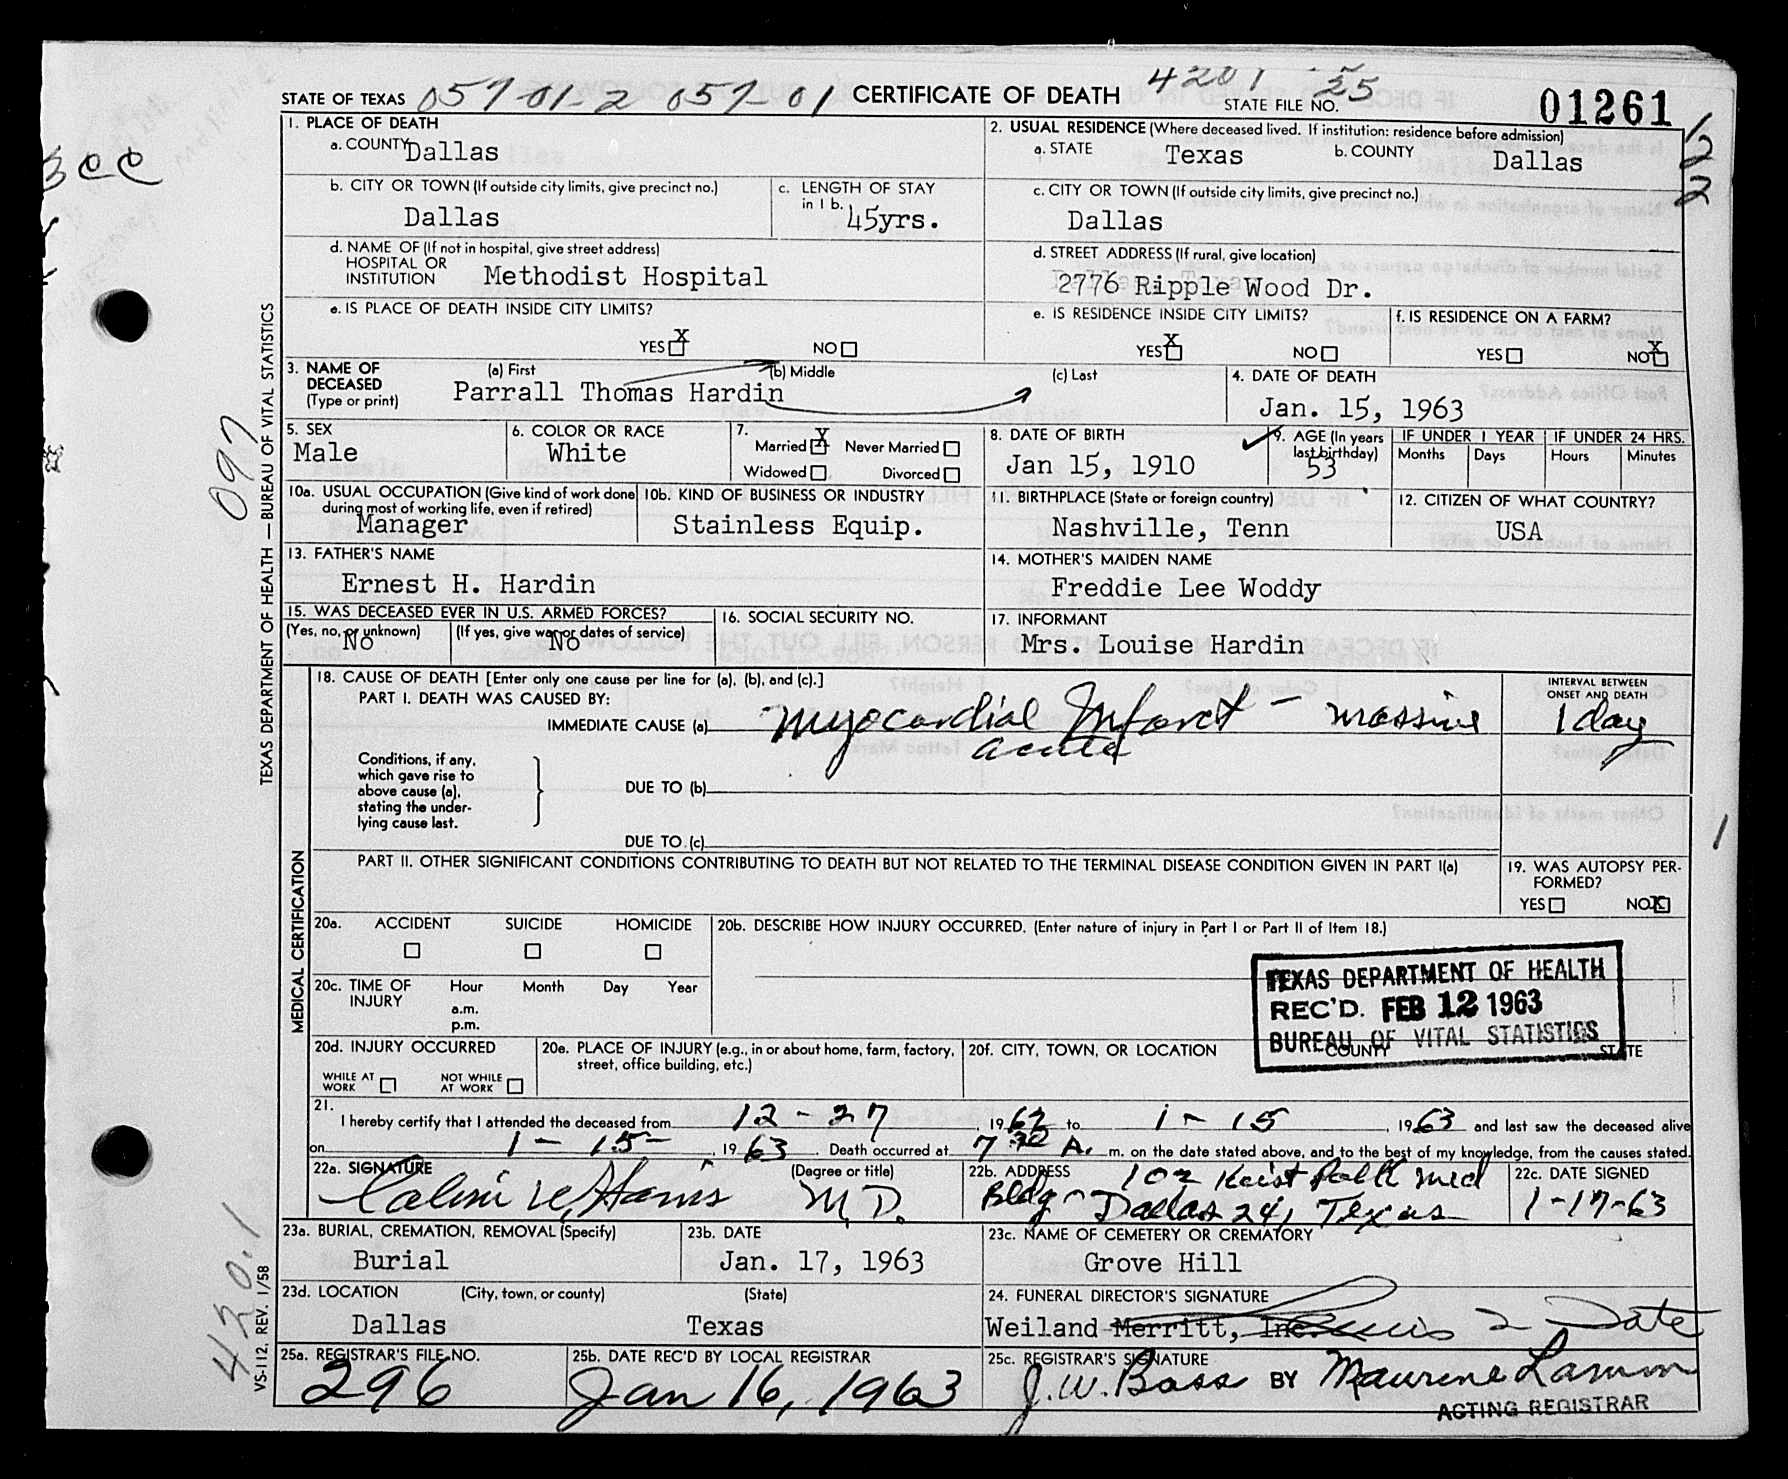 STATE OF TEXAS 057-01-2 057-01 CERTIFICATE OF DEATH 4201 - 25 STATE FILE NO. 01261
1. PLACE OF DEATH
a. COUNTY Dallas
2. USUAL RESIDENCE (Where deceased lived. If institution: residence before admission)
a. STATE Texas b. COUNTY Dallas
b. CITY OR TOWN (If outside city limits, give precinct no.)
Dallas
c. LENGTH OF STAY in 1 b.
45yrs.
c. CITY OR TOWN (If outside city limits, give precinct no.)
Dallas
d. NAME OF (If not in hospital, give street address)
HOSPITAL OR
INSTITUTION Methodist Hospital
d. STREET ADDRESS (If rural, give location)
2776 Ripple Wood Dr.
e. IS PLACE OF DEATH INSIDE CITY LIMITS?
YES X NO
e. IS RESIDENCE INSIDE CITY LIMITS?
YES X NO
f. IS RESIDENCE ON A FARM?
YES NO X
3. NAME OF DECEASED (Type or print)
(a) First (b) Middle (c) Last
Parrall Thomas Hardin
4. DATE OF DEATH
Jan. 15, 1963
5. SEX
Male
6. COLOR OR RACE
White
7.
Married X Never Married
Widowed Divorced
8. DATE OF BIRTH
Jan 15, 1910
9. AGE (In years last birthday)
53
IF UNDER 1 YEAR IF UNDER 24 HRS.
Months Days Hours Minutes
10a. USUAL OCCUPATION (Give kind of work done during most of working life, even if retired)
Manager
10b. KIND OF BUSINESS OR INDUSTRY
Stainless Equip.
11. BIRTHPLACE (State or foreign country)
Nashville, Tenn
12. CITIZEN OF WHAT COUNTRY?
USA
13. FATHER'S NAME
Ernest H. Hardin
14. MOTHER'S MAIDEN NAME
Freddie Lee Woddy
15. WAS DECEASED EVER IN U.S. ARMED FORCES?
(Yes, no, or unknown) (If yes, give war or dates of service)
No No
16. SOCIAL SECURITY NO.
17. INFORMANT
Mrs. Louise Hardin
18. CAUSE OF DEATH [Enter only one cause per line for (a), (b), and (c).]
PART I. DEATH WAS CAUSED BY:
IMMEDIATE CAUSE (a) Myocardial Infarct - massive
acute
INTERVAL BETWEEN ONSET AND DEATH
1 day
Conditions, if any,
which gave rise to
above cause (a),
stating the under-
lying cause last.
DUE TO (b)
DUE TO (c)
PART II. OTHER SIGNIFICANT CONDITIONS CONTRIBUTING TO DEATH BUT NOT RELATED TO THE TERMINAL DISEASE CONDITION GIVEN IN PART I(a)
19. WAS AUTOPSY PER-
FORMED?
YES NO X
20a. ACCIDENT SUICIDE HOMICIDE
20b. DESCRIBE HOW INJURY OCCURRED. (Enter nature of injury in Part I or Part II of Item 18.)
20c. TIME OF INJURY Hour Month Day Year
a.m.
p.m.
TEXAS DEPARTMENT OF HEALTH
REC'D. FEB 12 1963
BUREAU OF VITAL STATISTICS
20d. INJURY OCCURRED
WHILE AT WORK NOT WHILE AT WORK
20e. PLACE OF INJURY (e.g., in or about home, farm, factory, street, office building, etc.)
20f. CITY, TOWN, OR LOCATION COUNTY STATE
21.
I hereby certify that I attended the deceased from 12-27, 1962 to 1-15, 1963 and last saw the deceased alive
on 1-15-, 1963. Death occurred at 7:30 A. m. on the date stated above, and to the best of my knowledge, from the causes stated.
22a. SIGNATURE (Degree or title)
M.D.
22b. ADDRESS 102 Med
Bldg - Dallas 24, Texas
22c. DATE SIGNED
1-17-63
23a. BURIAL, CREMATION, REMOVAL (Specify)
Burial
23b. DATE
Jan. 17, 1963
23c. NAME OF CEMETERY OR CREMATORY
Grove Hill
23d. LOCATION (City, town, or county) (State)
Dallas Texas
24. FUNERAL DIRECTOR'S SIGNATURE
Weiland Merritt, Inc.
25a. REGISTRAR'S FILE NO.
296
25b. DATE REC'D BY LOCAL REGISTRAR
Jan 16, 1963
25c. REGISTRAR'S SIGNATURE
J.W. Bass BY Maurene
ACTING REGISTRAR
TEXAS DEPARTMENT OF HEALTH — BUREAU OF VITAL STATISTICS
MEDICAL CERTIFICATION
VS-112, REV. 1/58
097
420.1